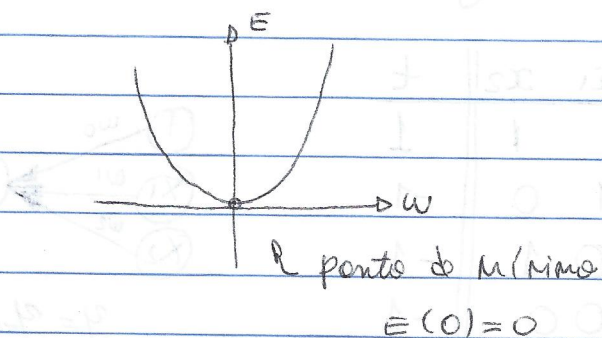 E
w
R ponto do mínimo
E(0)=0